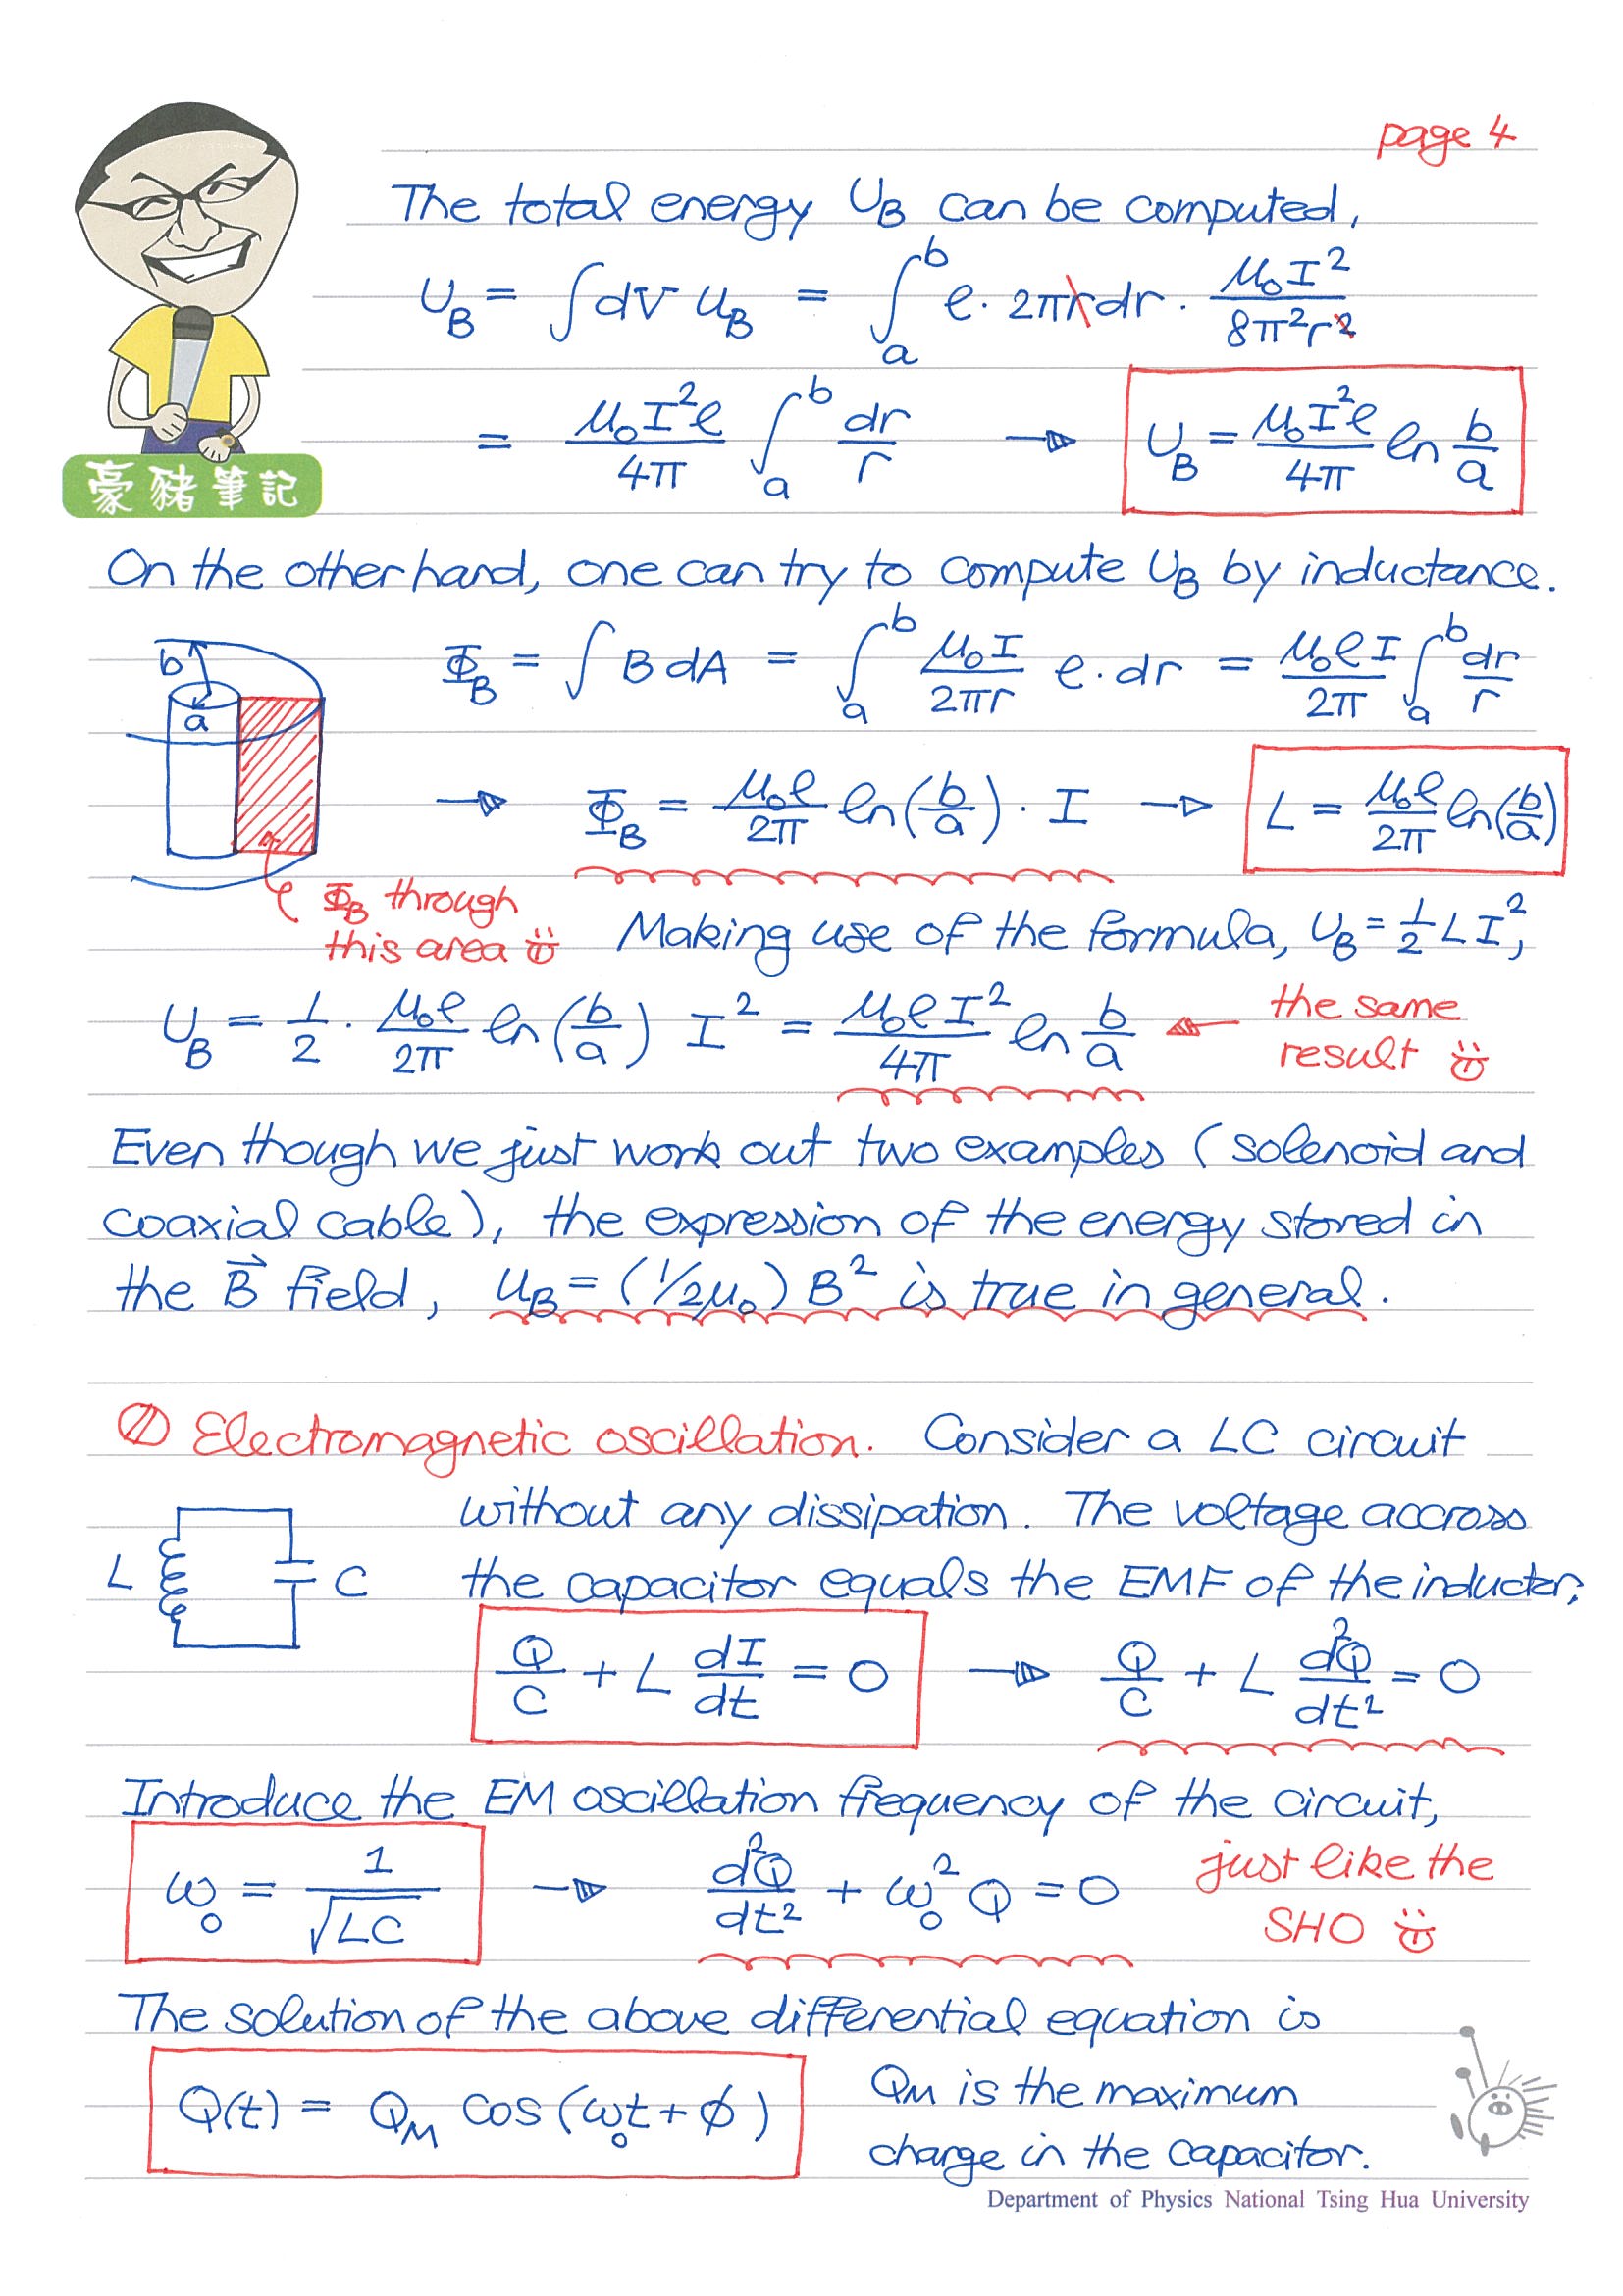 page 4
The total energy U_B can be computed,
U_B = ∫dV u_B = ∫_a^b ℓ · 2πr dr · μ₀I²/8π²r²
= μ₀I²ℓ/4π ∫_a^b dr/r → U_B = μ₀I²ℓ/4π ln b/a
豪豬筆記
On the other hand, one can try to compute U_B by inductance.
b
a
Φ_B = ∫ B dA = ∫_a^b μ₀I/2πr ℓ · dr = μ₀ℓI/2π ∫_a^b dr/r
→ Φ_B = μ₀ℓ/2π ln(b/a) · I → L = μ₀ℓ/2π ln(b/a)
Φ_B through
this area
Making use of the formula, U_B = 1/2 LI²,
U_B = 1/2 · μ₀ℓ/2π ln(b/a) I² = μ₀ℓI²/4π ln b/a ← the same
result
Even though we just work out two examples (solenoid and
coaxial cable), the expression of the energy stored in
the B⃗ field, u_B = (1/2μ₀) B² is true in general.
Ⓘ Electromagnetic oscillation. Consider a LC circuit
without any dissipation. The voltage accross
L C
the capacitor equals the EMF of the inductor;
Q/C + L dI/dt = 0 → Q/C + L d²Q/dt² = 0
Introduce the EM oscillation frequency of the circuit,
ω₀ = 1/√LC → d²Q/dt² + ω₀² Q = 0 just like the
SHO
The solution of the above differential equation is
Q(t) = Q_M cos(ω₀t + φ)
Q_M is the maximum
charge in the capacitor.
Department of Physics National Tsing Hua University